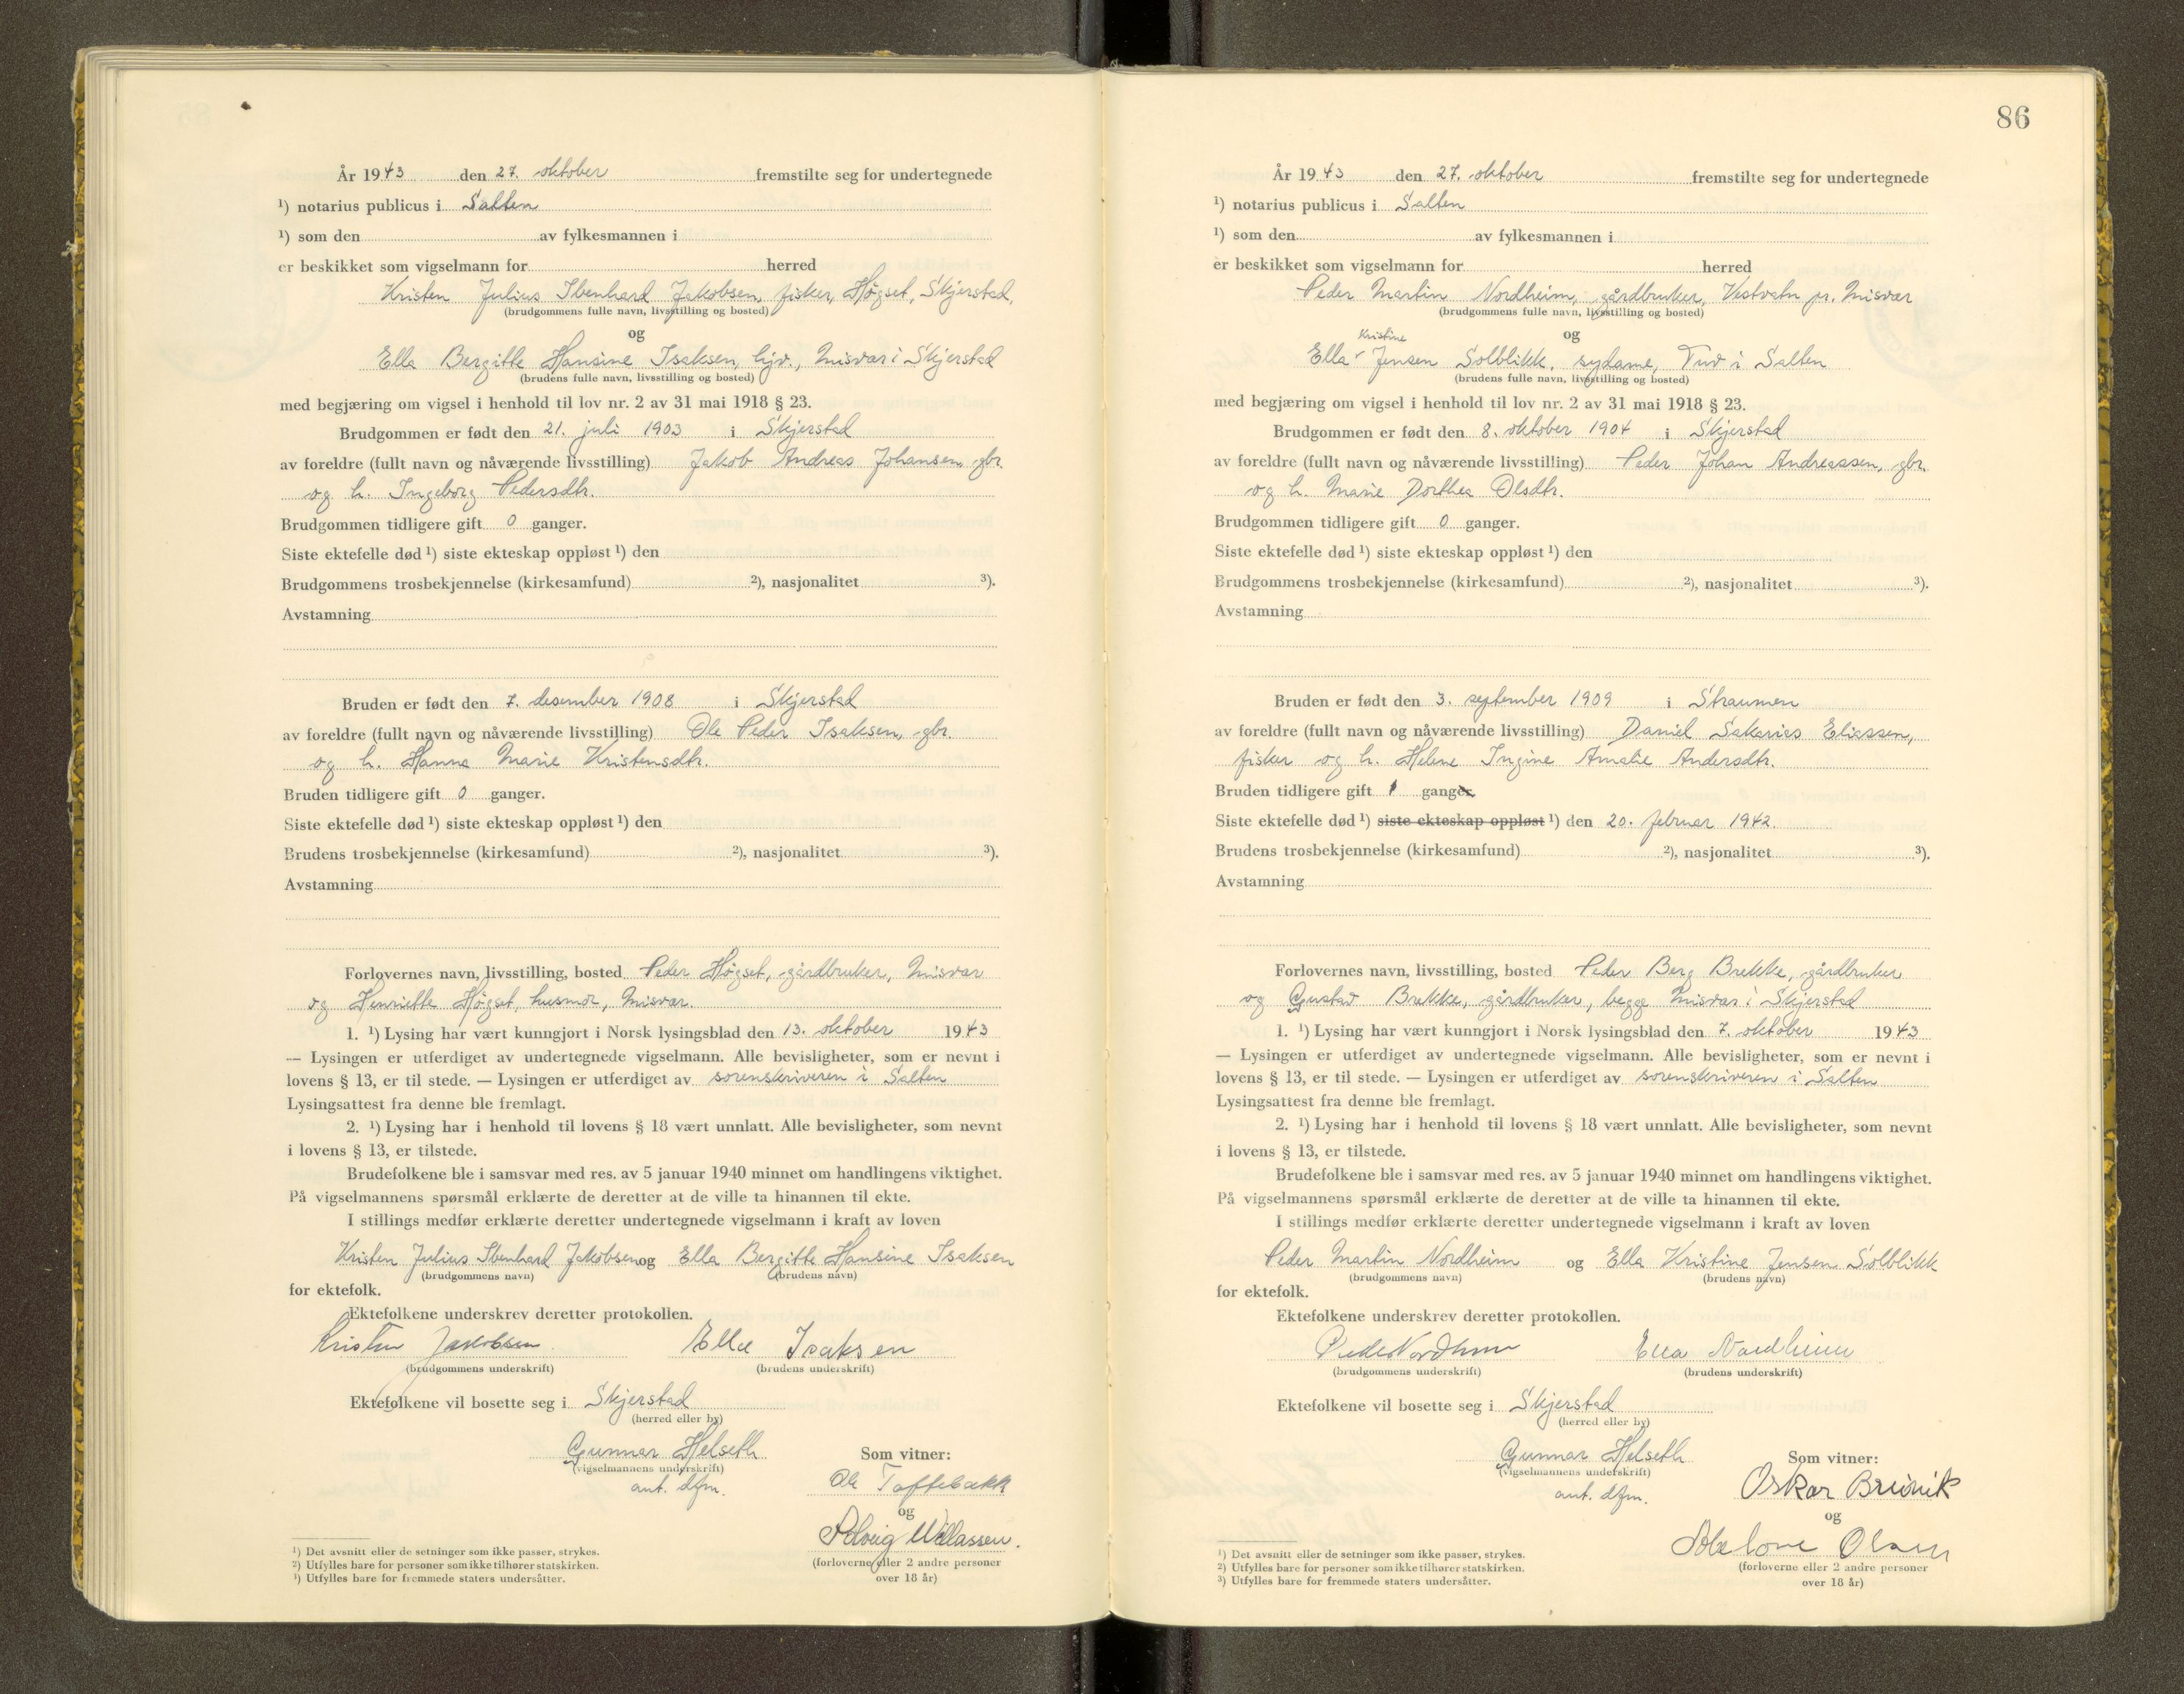 År 1943 den 27. oktober fremstilte seg for undertegnede
¹) notarius publicus i Salten
¹) som den av fylkesmannen i
er beskikket som vigselmann for herred
Kristen Julius Ibenhard Jakobsen, fisker, Høgset, Skjerstad,
(brudgommens fulle navn, livsstilling og bosted)
og
Ella Bergitte Hansine Isaksen, hjv., Misvær i Skjerstad
(brudens fulle navn, livsstilling og bosted)
med begjæring om vigsel i henhold til lov nr. 2 av 31 mai 1918 § 23.
Brudgommen er født den 21. juli 1903 i Skjerstad
av foreldre (fullt navn og nåværende livsstilling) Jakob Andreas Johansen, gbr.
og h. Ingeborg Pedersdtr.
Brudgommen tidligere gift 0 ganger.
Siste ektefelle død ¹) siste ekteskap oppløst ¹) den
Brudgommens trosbekjennelse (kirkesamfund) ²), nasjonalitet ³).
Avstamning
Bruden er født den 7. desember 1908 i Skjerstad
av foreldre (fullt navn og nåværende livsstilling) Ole Peder Isaksen, gbr.
og h. Hanna Marie Kristensdtr.
Bruden tidligere gift 0 ganger.
Siste ektefelle død ¹) siste ekteskap oppløst ¹) den
Brudens trosbekjennelse (kirkesamfund) ²), nasjonalitet ³).
Avstamning
Forlovernes navn, livsstilling, bosted Peder Høgset, gårdbruker, Misvær
og Henriette Høgset, husmor, Misvær.
1. ¹) Lysing har vært kunngjort i Norsk lysingsblad den 13. oktober 1943
— Lysingen er utferdiget av undertegnede vigselmann. Alle bevisligheter, som er nevnt i
lovens § 13, er til stede. — Lysingen er utferdiget av sorenskriveren i Salten
Lysingsattest fra denne ble fremlagt.
2. ¹) Lysing har i henhold til lovens § 18 vært unnlatt. Alle bevisligheter, som nevnt
i lovens § 13, er tilstede.
Brudefolkene ble i samsvar med res. av 5 januar 1940 minnet om handlingens viktighet.
På vigselmannens spørsmål erklærte de deretter at de ville ta hinannen til ekte.
I stillings medfør erklærte deretter undertegnede vigselmann i kraft av loven
Kristen Julius Ibenhard Jakobsen og Ella Bergitte Hansine Isaksen
(brudgommens navn) (brudens navn)
for ektefolk.
Ektefolkene underskrev deretter protokollen.
Kristen Jakobsen Ella Isaksen
(brudgommens underskrift) (brudens underskrift)
Ektefolkene vil bosette seg i Skjerstad
(herred eller by)
Gunnar Helseth Som vitner:
(vigselmannens underskrift)
aut. dfm. Ole Toftebakk
og
Solveig Willassen.
(forloverne eller 2 andre personer
over 18 år)
¹) Det avsnitt eller de setninger som ikke passer, strykes.
²) Utfylles bare for personer som ikke tilhører statskirken.
³) Utfylles bare for fremmede staters undersåtter.
86
År 1943 den 27. oktober fremstilte seg for undertegnede
¹) notarius publicus i Salten
¹) som den av fylkesmannen i
er beskikket som vigselmann for herred
Peder Martin Nordheim, gårdbruker, Vestvatn pr. Misvær
(brudgommens fulle navn, livsstilling og bosted)
og
Kristine
Ella Jensen Solblikk, sydame, Tuv i Salten
(brudens fulle navn, livsstilling og bosted)
med begjæring om vigsel i henhold til lov nr. 2 av 31 mai 1918 § 23.
Brudgommen er født den 8. oktober 1904 i Skjerstad
av foreldre (fullt navn og nåværende livsstilling) Peder Johan Andreassen, gbr.
og h. Marie Dorthea Olsdtr.
Brudgommen tidligere gift 0 ganger.
Siste ektefelle død ¹) siste ekteskap oppløst ¹) den
Brudgommens trosbekjennelse (kirkesamfund) ²), nasjonalitet ³).
Avstamning
Bruden er født den 3. september 1909 i Straumen
av foreldre (fullt navn og nåværende livsstilling) Daniel Sakarias Eliassen,
fisker og h. Helene Ingine Amalie Andersdtr.
Bruden tidligere gift 1 ganger
Siste ektefelle død ¹) siste ekteskap oppløst ¹) den 20. februar 1942.
Brudens trosbekjennelse (kirkesamfund) ²), nasjonalitet ³).
Avstamning
Forlovernes navn, livsstilling, bosted Peder Berg Brekke, gårdbruker
og Gustav Brekke, gårdbruker, begge Misvær i Skjerstad
1. ¹) Lysing har vært kunngjort i Norsk lysingsblad den 7. oktober 1943
— Lysingen er utferdiget av undertegnede vigselmann. Alle bevisligheter, som er nevnt i
lovens § 13, er til stede. — Lysingen er utferdiget av sorenskriveren i Salten
Lysingsattest fra denne ble fremlagt.
2. ¹) Lysing har i henhold til lovens § 18 vært unnlatt. Alle bevisligheter, som nevnt
i lovens § 13, er tilstede.
Brudefolkene ble i samsvar med res. av 5 januar 1940 minnet om handlingens viktighet.
På vigselmannens spørsmål erklærte de deretter at de ville ta hinannen til ekte.
I stillings medfør erklærte deretter undertegnede vigselmann i kraft av loven
Peder Martin Nordheim og Ella Kristine Jensen Solblikk
(brudgommens navn) (brudens navn)
for ektefolk.
Ektefolkene underskrev deretter protokollen.
Peder Nordheim Ella Nordheim
(brudgommens underskrift) (brudens underskrift)
Ektefolkene vil bosette seg i Skjerstad
(herred eller by)
Gunnar Helseth Som vitner:
(vigselmannens underskrift)
aut. dfm. Oskar
og
Olsen
(forloverne eller 2 andre personer
over 18 år)
¹) Det avsnitt eller de setninger som ikke passer, strykes.
²) Utfylles bare for personer som ikke tilhører statskirken.
³) Utfylles bare for fremmede staters undersåtter.